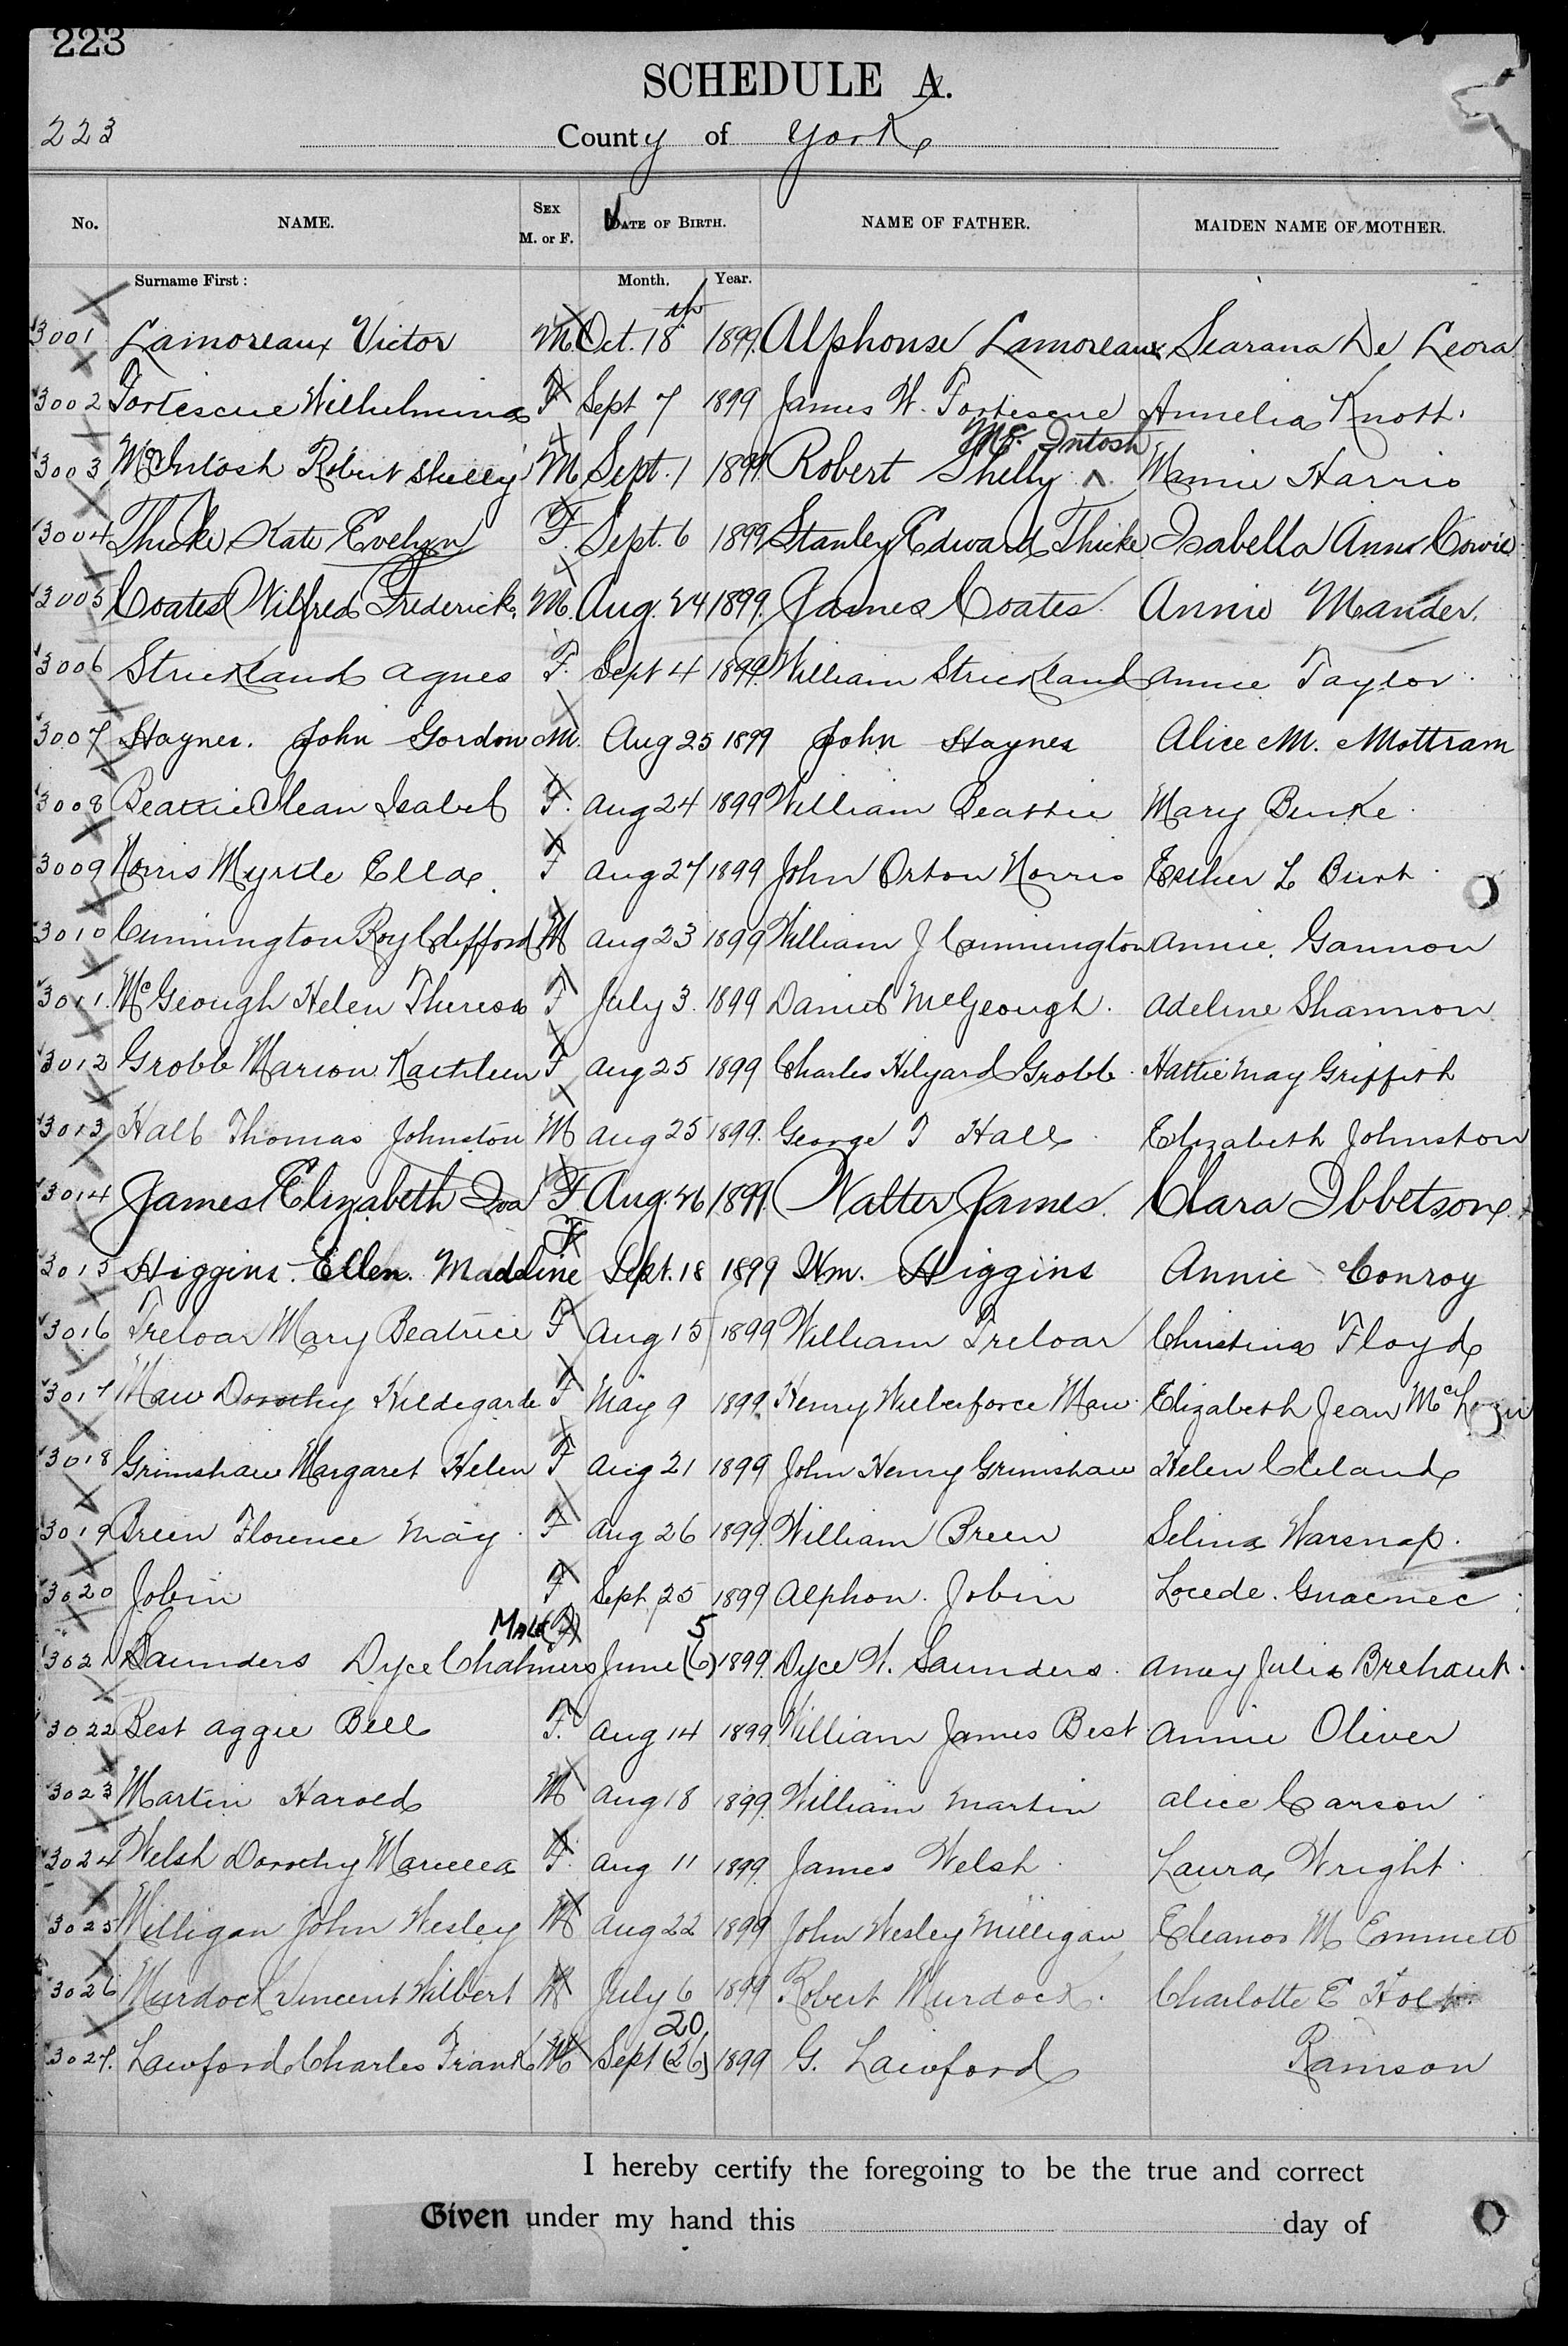 223
SCHEDULE A.
223
County of York
No. NAME. SEX M. or F. DATE OF BIRTH. NAME OF FATHER. MAIDEN NAME OF MOTHER.
Surname First: Month. Year.
3001 Lamoreaux Victor M. Oct. 18th 1899. Alphonse Lamoreaux Searana De Leora
3002 Fortescue Wilhelmina F Sept 7 1899 James W. Fortescue Annelia Knott.
3003 McIntosh Robert Shelly M Sept. 1 1899 Robert Shelly ^ McIntosh Mamie Harris
3004 Thicke, Kate Evelyn F. Sept. 6 1899 Stanley Edward Thicke Isabella Ann Cowie
3005 Coates Wilfred Frederick. M. Aug. 24 1899. James Coates. Annie Mander.
3006 Strickland Agnes F. Sept 4 1899. William Strickland Annie Taylor.
3007 Haynes. John Gordon M. Aug 25 1899 John Haynes Alice M. Mottram
3008 Beattie Mean Isabel F. Aug 24 1899 William Beattie Mary Burke.
3009 Norris Myrtle Ella. F Aug 27 1899 John Orton Norris Esther L Burt.
3010 Cunnington Roy Clifford M Aug 23 1899 William J Cunnington Annie. Gannon
3011. McGeough Helen Theresa F July 3. 1899 Daniel McGeough. Adeline Shannon
3012 Grobb Marion Kathleen F Aug 25 1899 Charles Hilyard Grobb. Hattie May Griffith
3013 Hall Thomas Johnston M Aug 25 1899. George T Hall. Elizabeth Johnston
3014 James Elizabeth Iva F Aug. 26 1899. Walter James. Clara Ibbetson.
3015 Higgins. Ellen. Madeline F Sept. 18 1899 Wm. Higgins Annie Conroy
3016 Treloar Mary Beatrice F Aug 15 1899 William Treloar Christina Floyd
3017 Maw Dorothy Hildegarde F May 9 1899. Henry Wilberforce Maw. Elizabeth Jean
3018 Grimshaw Margaret Helen F Aug 21 1899 John Henry Grimshaw Helen Cleland
3019 Breen Florence May. F Aug 26 1899. William Breen Selina Warsnap.
3020 Jobin F Sept 25 1899 Alphon. Jobin Locede. Guacnec
3021 Saunders Dyce Chalmers Male (F) June 5 (6) 1899. Dyce W. Saunders. Amey Julia Brehaut.
3022 Best Aggie Bell F. Aug 14 1899. William James Best. Annie Oliver
3023 Martin Harold M Aug 18 1899. William Martin Alice Carson.
3024 Welsh Dorothy F. Aug 11 1899. James Welsh. Laura Wright.
3025 Milligan John Wesley M Aug 22 1899 John Wesley Milligan Eleanor M Emmett
3026 Murdock Vincent Wilbert M July 6 1899 Robert Murdock. Charlotte E Holt.
3027. Lawford Charles Frank M Sept 20 (26) 1899 G. Lawford Ramson
I hereby certify the foregoing to be the true and correct
Given under my hand this day of